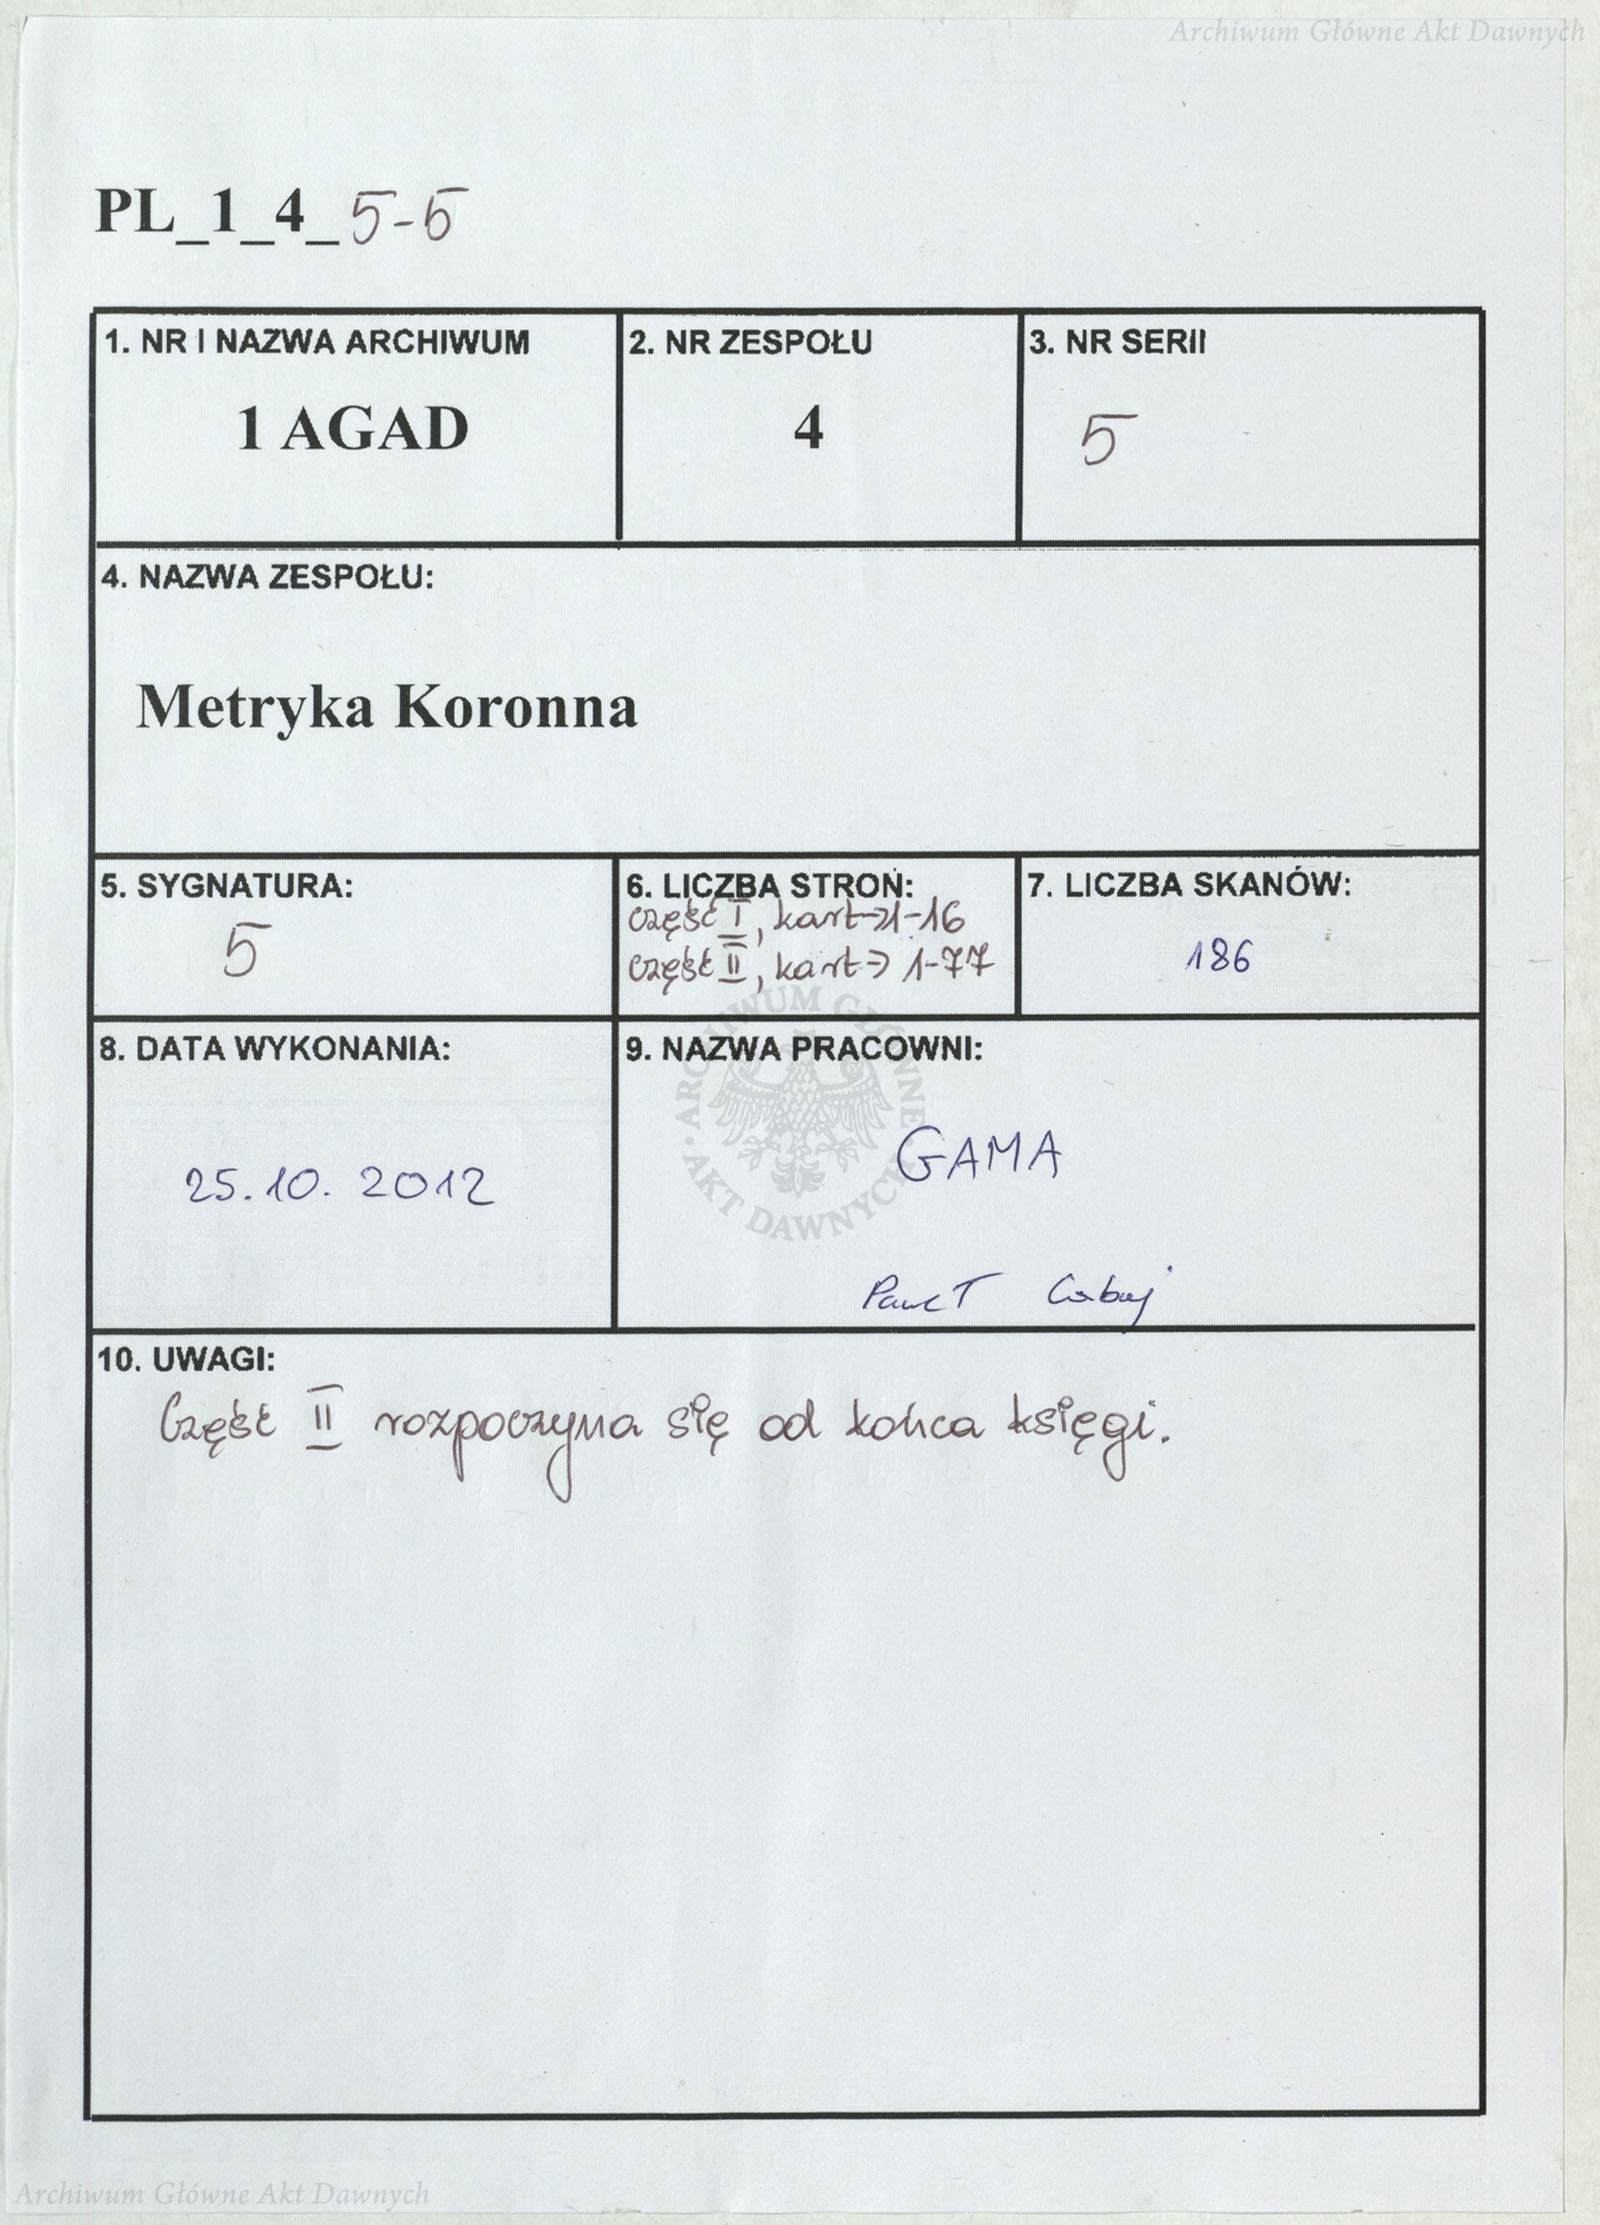 Archiwum Główne Akt Dawnych
PL_1_4_5-5
1. NR I NAZWA ARCHIWUM
1 AGAD
2. NR ZESPOŁU
4
3. NR SERII
5
4. NAZWA ZESPOŁU:
Metryka Koronna
5. SYGNATURA:
5
6. LICZBA STRON:
część I, kart→1-16
część II, kart→ 1-77
7. LICZBA SKANÓW:
186
8. DATA WYKONANIA:
25.10.2012
9. NAZWA PRACOWNI:
GAMA
Paweł
ARCHIWUM GŁÓWNE AKT DAWNYCH
10. UWAGI:
Część II rozpoczyna się od końca księgi.
Archiwum Główne Akt Dawnych